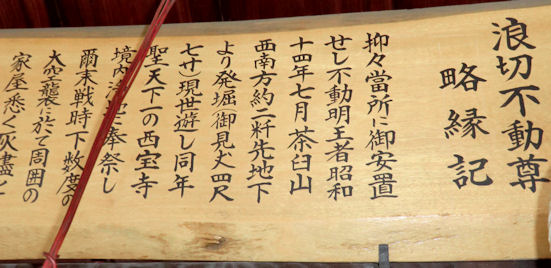 浪切不動尊
略縁記
抑々當所に御安置
せし不動明王者昭和
十四年七月茶臼山
西南方約二粁先地下
より発堀(御見丈四尺
七寸)現世遊し同年
聖天下一の西宝寺
境内浄地に奉祭し
爾末戦時下数度の
大空襲に於て周囲の
家屋悉く灰盡と